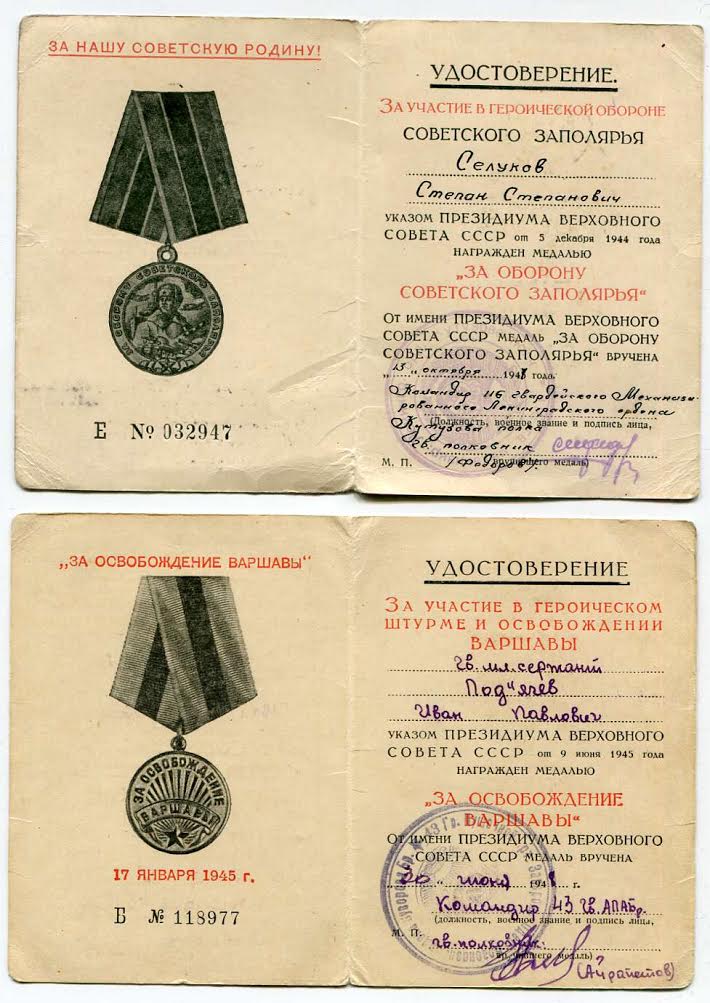 ЗА НАШУ СОВЕТСКУЮ РОДИНУ!
Е № 032947
УДОСТОВЕРЕНИЕ.
ЗА УЧАСТИЕ В ГЕРОИЧЕСКОЙ ОБОРОНЕ
СОВЕТСКОГО ЗАПОЛЯРЬЯ
Селуков
Степан Степанович
УКАЗОМ ПРЕЗИДИУМА ВЕРХОВНОГО
СОВЕТА СССР от 5 декабря 1944 года
НАГРАЖДЕН МЕДАЛЬЮ
„ЗА ОБОРОНУ
СОВЕТСКОГО ЗАПОЛЯРЬЯ“
ОТ ИМЕНИ ПРЕЗИДИУМА ВЕРХОВНОГО
СОВЕТА СССР МЕДАЛЬ „ЗА ОБОРОНУ
СОВЕТСКОГО ЗАПОЛЯРЬЯ“ ВРУЧЕНА
„15„ октября 194 года.
Командир 116 гвардейского Механизи-
рованного Ленинградского ордена
Кутузова полка
(Должность, военное звание и подпись лица,
гв. полковник
М. П. /Федоров/. вручившего медаль)
„ЗА ОСВОБОЖДЕНИЕ ВАРШАВЫ“
ЗА ОСВОБОЖДЕНИЕ
ВАРШАВЫ
17 ЯНВАРЯ 1945 г.
Б № 118977
УДОСТОВЕРЕНИЕ
ЗА УЧАСТИЕ В ГЕРОИЧЕСКОМ
ШТУРМЕ И ОСВОБОЖДЕНИИ
ВАРШАВЫ
гв. мл. сержант
Под"ячев
Иван Павлович
УКАЗОМ ПРЕЗИДИУМА ВЕРХОВНОГО
СОВЕТА СССР от 9 июня 1945 года
НАГРАЖДЕН МЕДАЛЬЮ
„ЗА ОСВОБОЖДЕНИЕ
ВАРШАВЫ“
ОТ ИМЕНИ ПРЕЗИДИУМА ВЕРХОВНОГО
СОВЕТА СССР МЕДАЛЬ ВРУЧЕНА
„ 20 „ июня 194 г.
Командир 43 гв. АПАБр.
(должность, военное звание и подпись лица,
М. П. гв. полковник.
вручившего медаль)
(Айрапетов)